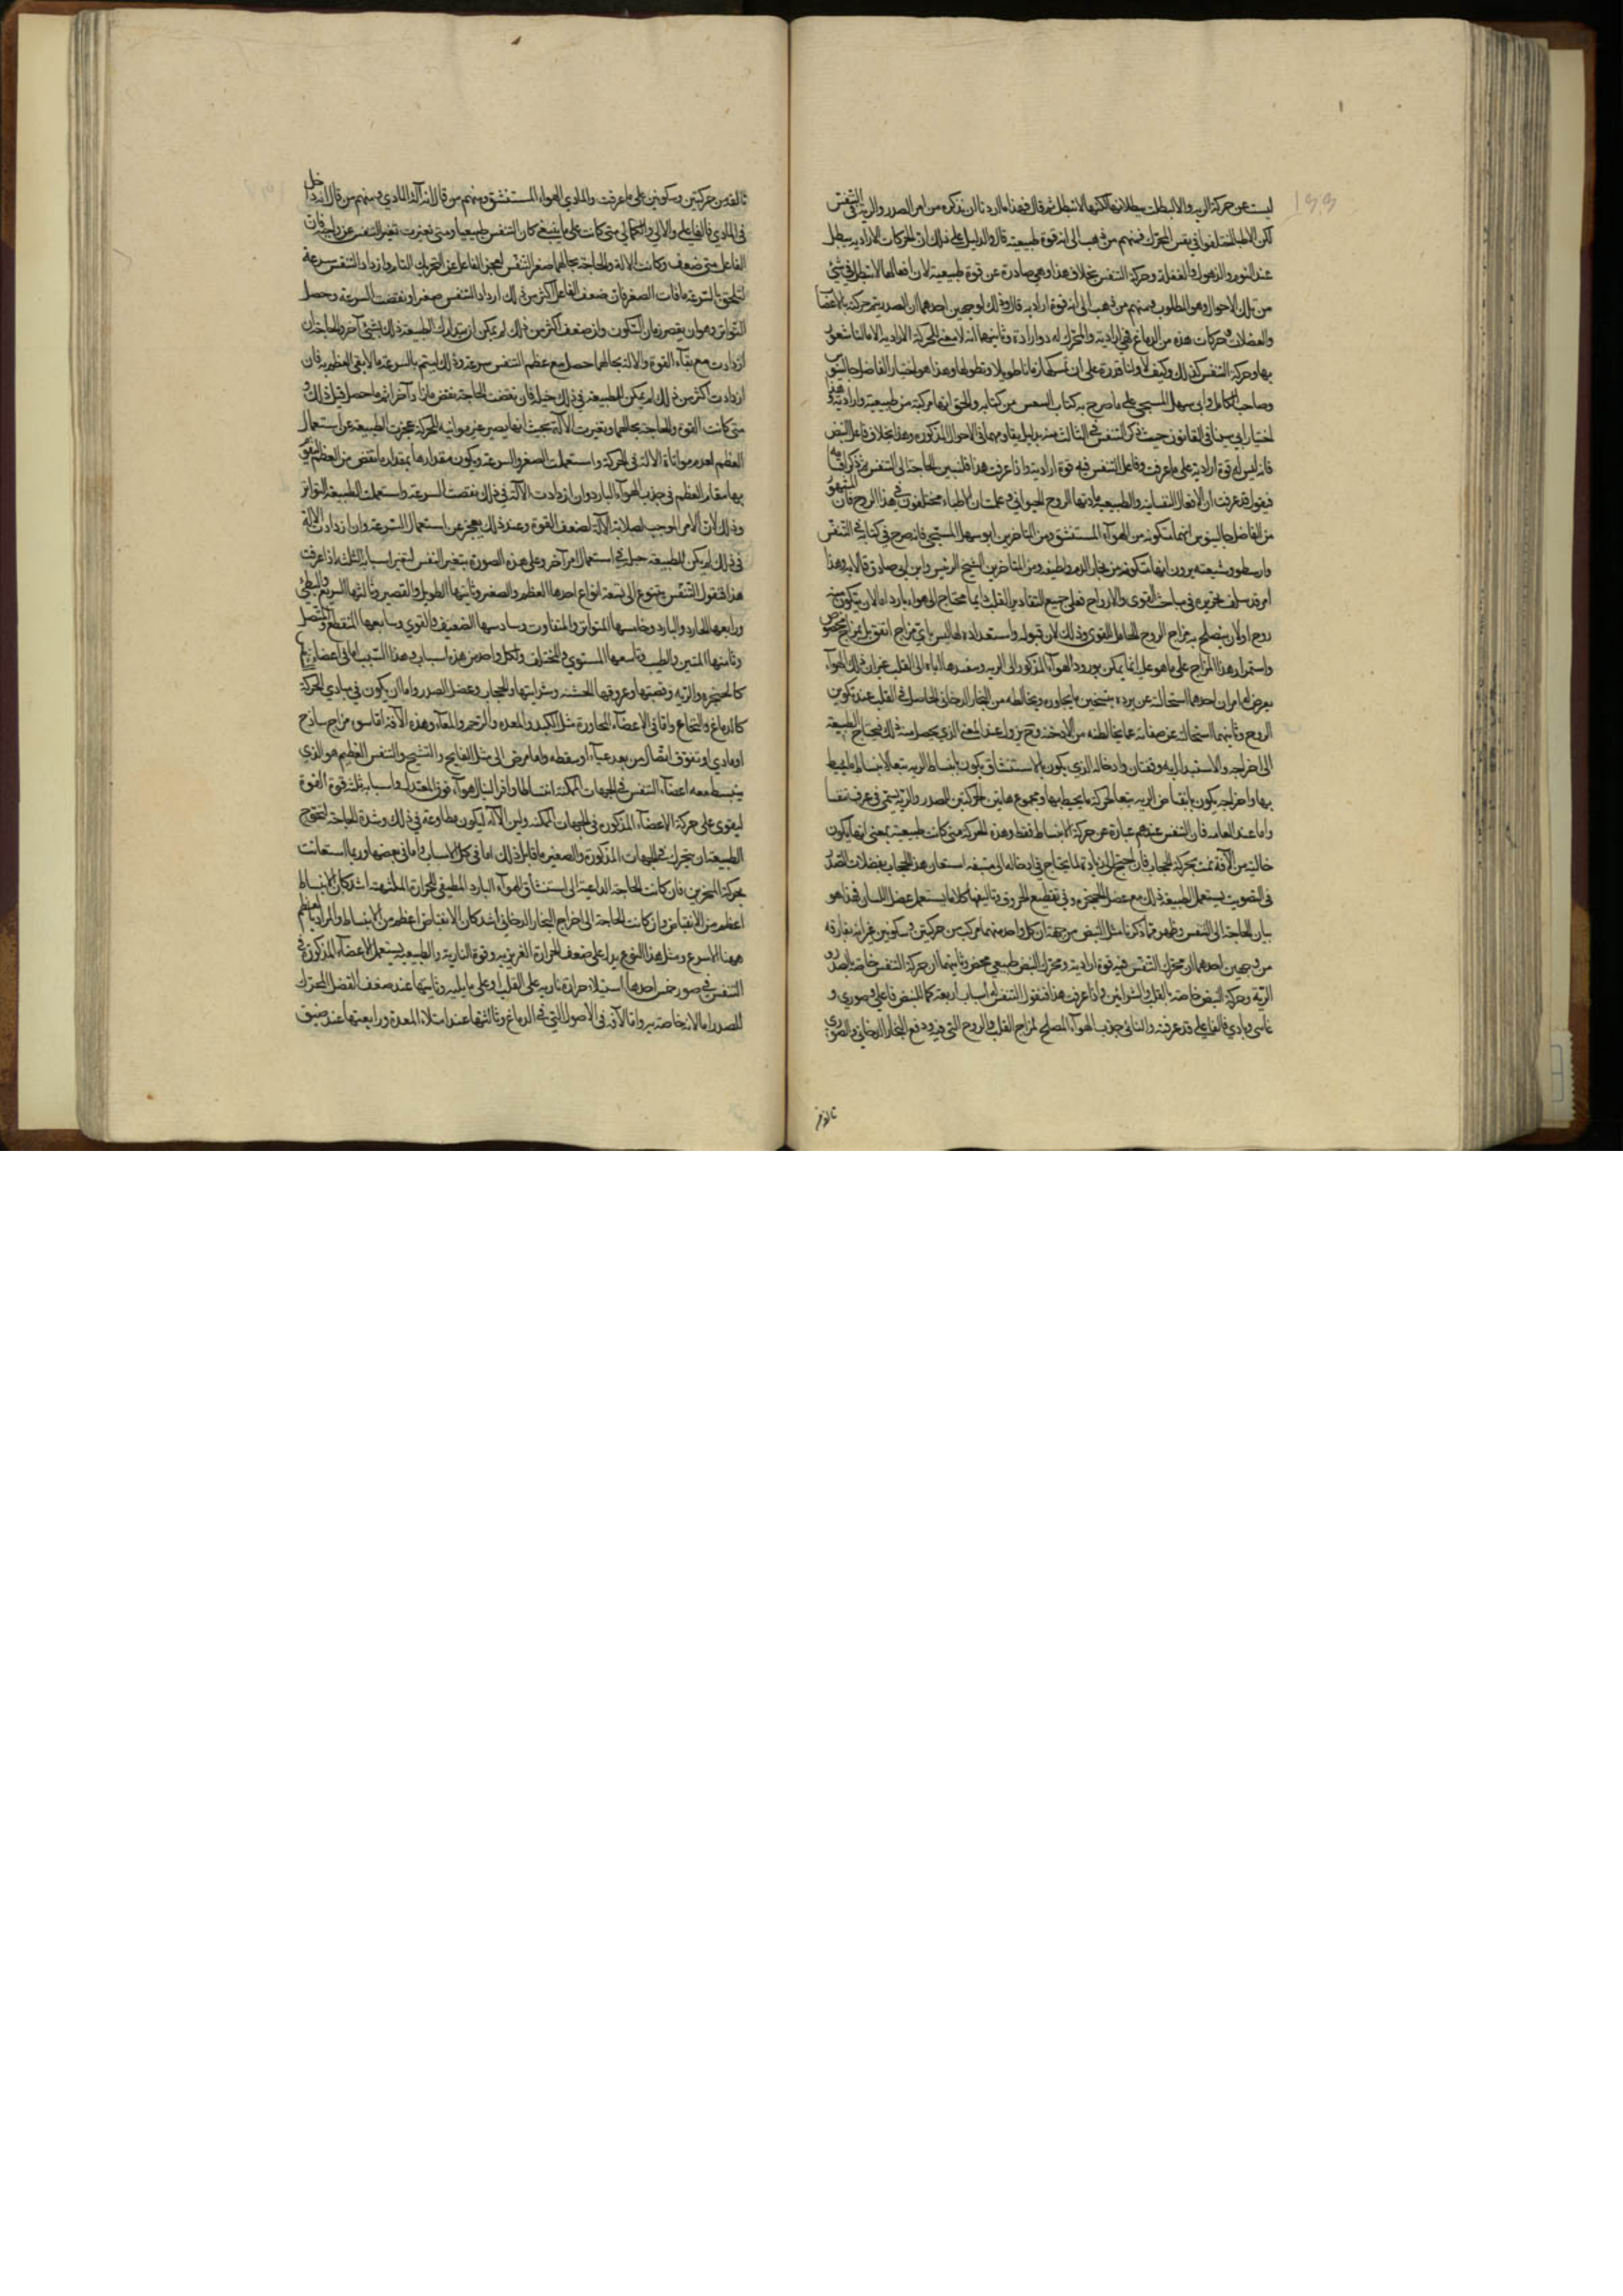 ليست عن حركة الرية والا لبطلت ببطلانها لكنها لا تبطل ثم قال فهذا ما اردنا ان نذكره من امر الصدر والرية في التنفس
لكن الاطباء اختلفوا في نفس المحرك فمنهم من ذهب الى انه قوة طبيعية قال والدليل على ذلك ان الحركات الارادية تبطل
عند النوم والذهول والغفلة وحركة التنفس بخلاف هذا وهي صادرة عن قوة طبيعية لان افعالها لا تبطل في شئ
من تلك الاحوال وهو المطلوب ومنهم من ذهب الى انه قوة ارادية قال وذلك لوجهين احدهما ان الصدر يتم حركته بالاعضا
والعضلات وحركات هذه من الدماغ فهي ارادية والمحرك له دو ارادة وثانيهما انه لا معنى للحركة الارادية الا ما لنا شعور
بها وحركة التنفس كذلك وكيف لا ولنا قدرة على ان نمسكها زمانا طويلا ونطولها وهذا هو اختيار الفاضل جالينوس
وصاحب الكامل وابي سهل المسيحي على ما صرح به كتاب النفس من كتابه والحق انها مركبة من طبيعية وارادية وهذا
اختيار ابي سينا في القانون حيث ذكر التنفس في الثالث منه بدليل بقاومهما في الاحوال المذكورة وهذا بخلاف فاعل النبض
فانه ليس له قوة ارادية على ما عرفت وفاعل التنفس فيه قوة ارادية واذا عرفت هذا فلنبين الحاجة الى التنفس ثم نذكر اقسامه
فنقول قد عرفت ان الافعال النفسانية والطبيعية مادتها الروح الحيواني وعلمت ان الاطباء مختلفون في هذا الروح فان المشهور
من الفاضل جالينوس انها متكونة من الهواء المستنشق ومن المتاخرين ابو سهل المسيحي فانه صرح في كتابه في التنفس
وارسطو وشيعته يرون انها متكونة من بخار الدم ولطيفه ومن المتاخرين الشيخ الرئيس وابن ابي صادق قالا به وهذا
امر قد سلف تحريره في مباحث القوى والارواح فعلى جميع التقادير القلب دايما محتاج الى هواء بارد اما لان يتكون منه
روح او لان يصلح به مزاج الروح الحامل للقوى وذلك لان قبوله واستعداده لها ليس باي مزاج اتفق بل بمزاج مخصوص
واستمرار هذا المزاج على ما هو عليه انما يمكن بورود الهواء المذكور الى الرية وسفدها اياه الى القلب غير ان ذلك الهواء
يعرض له امران احدهما استحالته عن برده بتسخين ما يجاوره ويخالطه من البخار الدخاني الحاصل في القلب عند تكوين
الروح وثانيهما استحالته عن صفائه عما يخالطه من الادخنة وح يزول عنه المعنى الذي يحصل منه ذلك فيحتاج الطبيعة
الى اخراجه والاستبدال به وقتان وادخاله الذي يكون بالاستنشاق يكون بانبساط الرية تبعا لانبساط المحيط
بها واخراجه يكون بانقباض الرية تبعا لحركة ما يحيط بها ومجموع هاتين الحركتين للصدر والرية يسمى في عرفنا تنفسا
واما عند العامة فان التنفس عندهم عبارة عن حركة الانبساط فقط وهذه الحركة متى كانت طبيعية بمعنى انها يكون
خالية من الآفة تمت بحركة الحجاب فان احتيج الى زيادة لما يحتاج في ادخاله الى مشقة استعان هذا الحجاب بعضلات الصدر
في التصويت يستعمل الطبيعة ذلك مع عضل الحنجرة وفي تقطيع الحروف وتاليفها كلاما يستعمل عضل اللسان فهذا هو
بيان الحاجة الى التنفس وظهر مما ذكرنا مثل النبض من جهة ان كل واحد منهما مركب من حركتين وسكونين غير انه يفارقه
من وجهين احدهما ان محرك التنفس فيه قوة ارادية ومحرك النبض طبيعي محض وثانيهما ان حركة التنفس خاصة بالصدر و
الرية وحركة النبض خاصة بالقلب والشرايين واذا عرفت هذا فنقول التنفس له اسباب اربعة كما للنبض فاعلي وصوري و
غائي ومادي فالفاعلي قد عرفته والغائي جذب الهواء المصلح لمزاج القلب والروح التي فيه ودفع البخار الدخاني والصوري
تالفه من
تالفه من حركتين وسكونين على ما عرفت والمادي الهواء المستنشق ومنهم من قال انه آلة المادي ومنهم من قال انه داخل
في المادي فالفاعلي والآلي والكمالي متى كانت على ما ينبغي كان التنفس طبيعيا ومتى تغيرت تغير التنفس عن واجبه فان
الفاعل متى ضعف وكانت الآلة والحاجة بحالهما صغر التنفس لعجز الفاعل عن التحريك التام وازداد التنفس سرعة
لتلحق بالسرعة ما فات الصغر فان ضعف الفاعل اكثر من ذلك ازداد التنفس صغرا ونقصت السرعة وحصل
التواتر وهو ان يقصر زمان السكون وان ضعف اكثر من ذلك لم يمكن ان يتدارك الطبيعة ذلك بشئ آخر والحاجة ان
ازدادت مع بقاء القوة والآلة بحالهما حصل مع عظم التنفس سرعة وذلك ليتم بالسرعة ما لا يفي العظم به فان
ازدادت اكثر من ذلك لم يمكن للطبيعة في ذلك حيلة فان نقصت الحاجة نقص ما زاد آخرا ثم ما حصل قبل ذلك و
متى كانت القوة والحاجة بحالهما وتغيرت الآلة بحيث انها يصير غير مواتية للحركة عجزت الطبيعة عن استعمال
العظم لعدم مواتاة الآلة في الحركة واستعملت الصغر والسرعة ويكون مقدارها بمقدار ما نقص من العظم ليقوم
بها مقام العظم في جذب الهواء البارد وان ازدادت الآلة في ذلك نقصت السرعة واستعملت الطبيعة التواتر
وذلك لان الامر الموجب لصلابة الآلة لضعف القوة وعند ذلك يعجز عن استعمال السرعة وان ازدادت الآلة
في ذلك لم يكن للطبيعة حيلة في استعمال امر آخر وعلى هذه الصورة يتغير النفس لتغير اسبابه الثلثة اذا عرفت
هذا فنقول التنفس يتنوع الى تسعة انواع احدها العظيم والصغير وثانيها الطويل والقصير وثالثها السريع والبطئ
ورابعها الحار والبارد وخامسها المتواتر والمتفاوت وسادسها الضعيف والقوي وسابعها المنقطع والمتصل
وثامنها المنتن والطيب وتاسعها المستوي والمختلف ولكل واحد من هذه اسباب وهذا السبب اما في اعضاء
كالحنجرة والرية وقصبتها وعروقها الخشنة وشرايينها والحجاب وعضل الصدر واما ان يكون في مبادي الحركة
كالدماغ والنخاع واما في الاعضاء المجاورة مثل الكبد والمعدة والرحم والمعاء وهذه الآفة اما سوء مزاج ساذج
او مادي او تفرق اتصال من بعد عياء او سقطة واما مرض الى مثل الفالج والتشنج والتنفس العظيم هو الذي
ينبسط معه اعضاء التنفس في الجهات الممكنة انبساطا وافرا لينال هواء فوق المعتدل واسبابه ثلثة قوة القوة
ليقوى على حركة الاعضاء المذكورة في الجهات الممكنة ولين الآلة ليكون مطاوعة في ذلك وشدة الحاجة لتحوج
الطبيعة ان يتحرك في الجهات المذكورة والصغير ما قابل ذلك اما في كل الاسباب واما في بعضها وربما استعانت
بحركة المنخرين فان كانت الحاجة الداعية الى استنشاق الهواء البارد المطفي للحرارة الملتهبة اشد كان الانبساط
اعظم من الانقباض وان كانت الحاجة الى اخراج البخار الدخاني اشد كان الانقباض اعظم من الانبساط والمراد بالعظم
ههنا الاسرع ومثل هذا النوع يدل على ضعف الحرارة الغريزية وقوة النارية والطبيعة يستعمل الاعضاء المذكورة في
التنفس في صور خمس احدها استيلاء حرارة نارية على القلب او على ما يليه وثانيها عند ضعف العضل المحرك
للصدر اما لآفة خاصة به واما لآفة في الاصول التي في الدماغ وثالثها عند امتلاء المعدة ورابعها عند ضيق